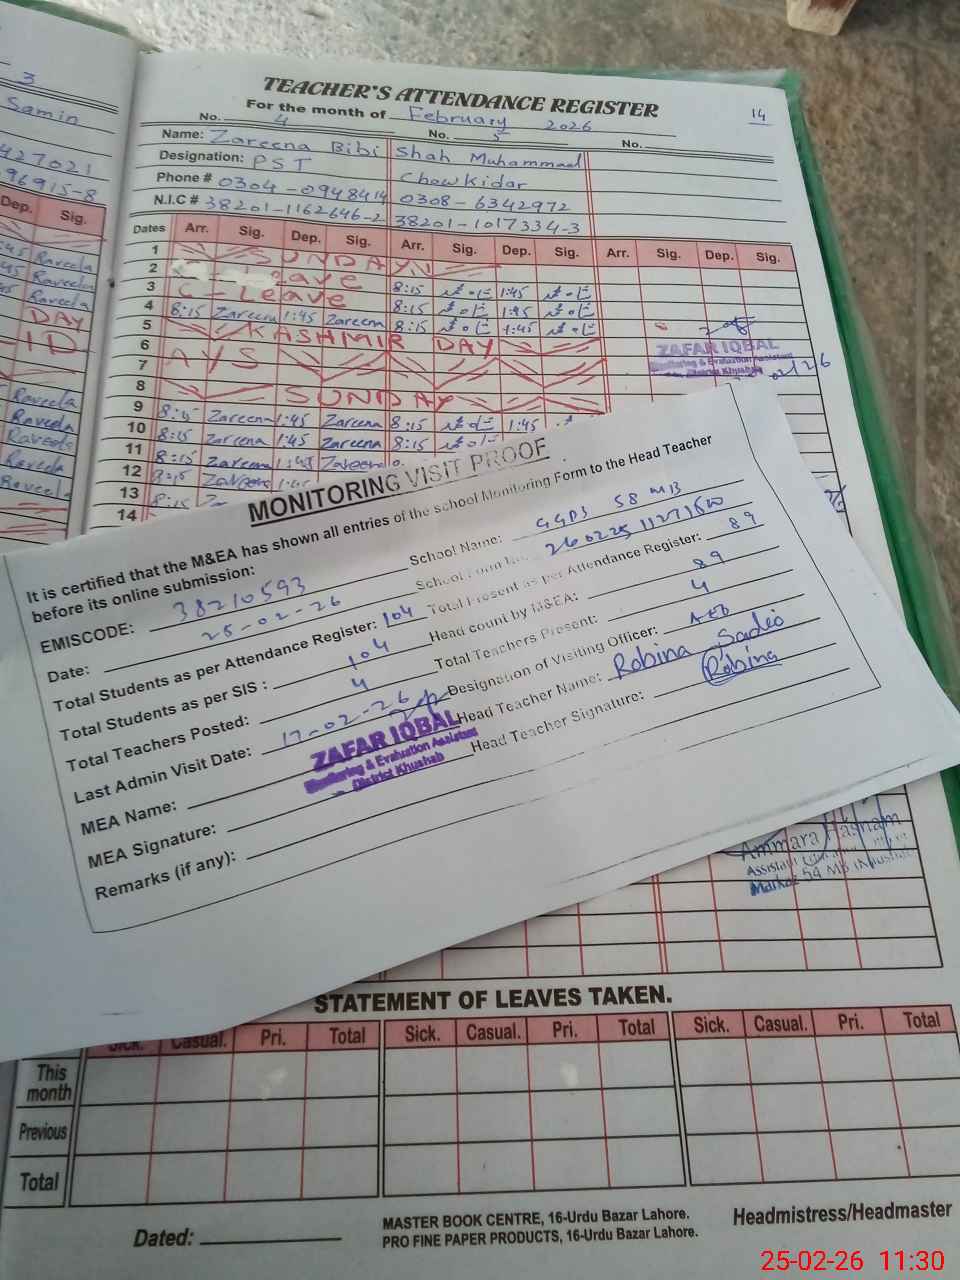 TEACHER'S ATTENDANCE REGISTER
14
For the month of February 2026
No. 4 No. 5 No.
Name: Zareena Bibi Shah Muhammad
Designation: PST Chowkidar
Phone # 0304-0948414 0308-6342972
N.I.C # 38201-1162646-2 38201-1017334-3
Dates Arr. Sig. Dep. Sig. Arr. Sig. Dep. Sig. Arr. Sig. Dep. Sig.
1 SUNDAY
2 Leave 8:15 1:45
3 C-Leave 8:15 1:45
4 8:15 Zareena 1:45 Zareena 8:15 1:45
5 KASHMIR DAY
6
7
8 SUNDAY
9 8:15 Zareena 1:45 Zareena 8:15 1:45
10 8:15 Zareena 1:45 Zareena 8:15
11 8:15 Zareena 1:45 Zareena
12 8:15 Zareena
13 8:15
14
ZAFAR IQBAL
Monitoring & Evaluation Assistant
District Khushab
3
Samin
427021
96915-8
Dep. Sig.
Raveela
Raveela
Raveela
DAY
Raveela
Raveela
Raveela
Raveela
Raveela
MONITORING VISIT PROOF
It is certified that the M&EA has shown all entries of the school Monitoring Form to the Head Teacher
before its online submission:
EMISCODE: 38210593 School Name: GGPS 58 MB
Date: 25-02-26 School Form
Total Students as per Attendance Register: 104 Total Present as per Attendance Register: 89
Total Students as per SIS : 104 Head count by M&EA: 89
Total Teachers Posted: 4 Total Teachers Present: 4
Last Admin Visit Date: 17-02-26 Designation of Visiting Officer: AEO
MEA Name: ZAFAR IQBAL Head Teacher Name: Robina Sadiq
Monitoring & Evaluation Assistant
District Khushab
MEA Signature: Head Teacher Signature: Robina
Remarks (if any):
Ammara Hasnam
Markaz 54 MB
STATEMENT OF LEAVES TAKEN.
Sick. Casual. Pri. Total Sick. Casual. Pri. Total Sick. Casual. Pri. Total
This month
Previous
Total
Dated:
MASTER BOOK CENTRE, 16-Urdu Bazar Lahore.
PRO FINE PAPER PRODUCTS, 16-Urdu Bazar Lahore.
Headmistress/Headmaster
25-02-26 11:30